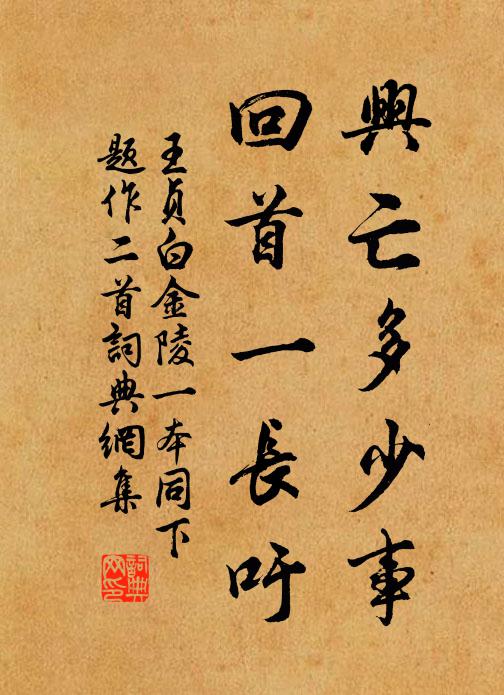 興亡多少事
回首一長吁
王貞白金陵一本同下
題作二首詞典網集
詞典
网印